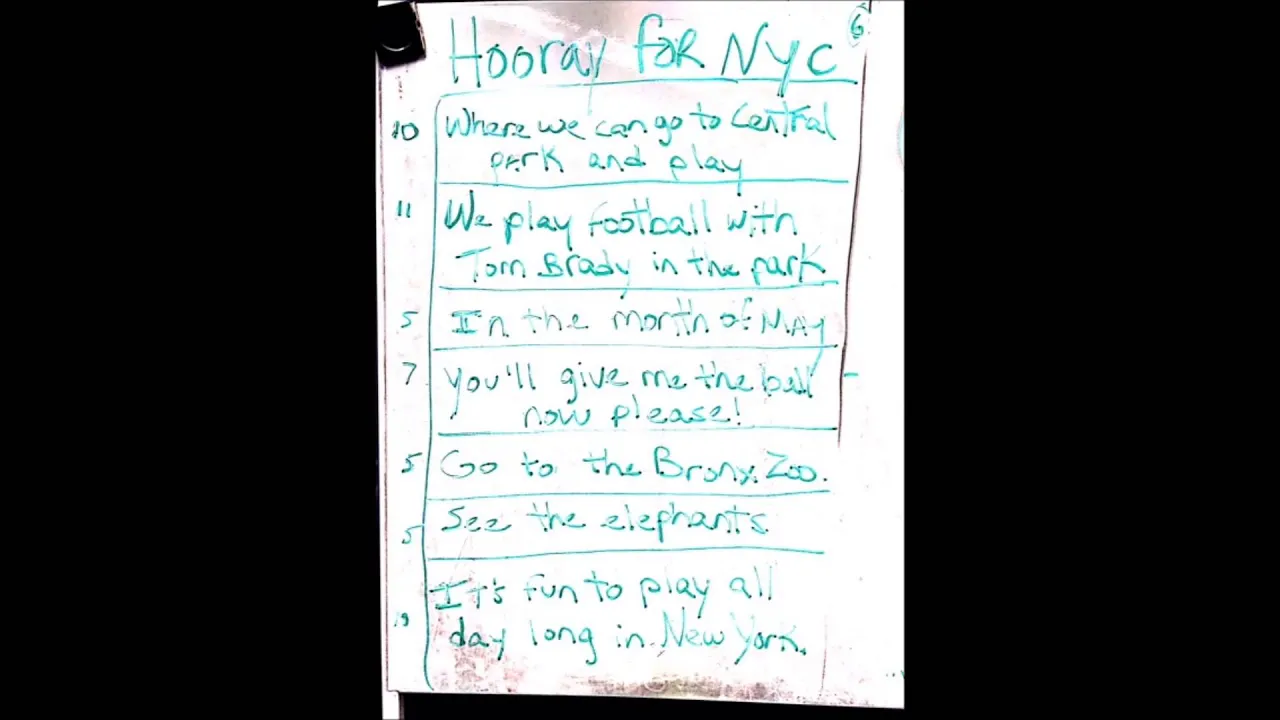 Hooray for NYC 6
10 Where we can go to Central
park and play
11 We play football with
Tom Brady in the park
5 In the month of MAY
7 You'll give me the ball
now please!
5 Go to the Bronx Zoo.
5 See the elephants.
It's fun to play all
day long in New York.